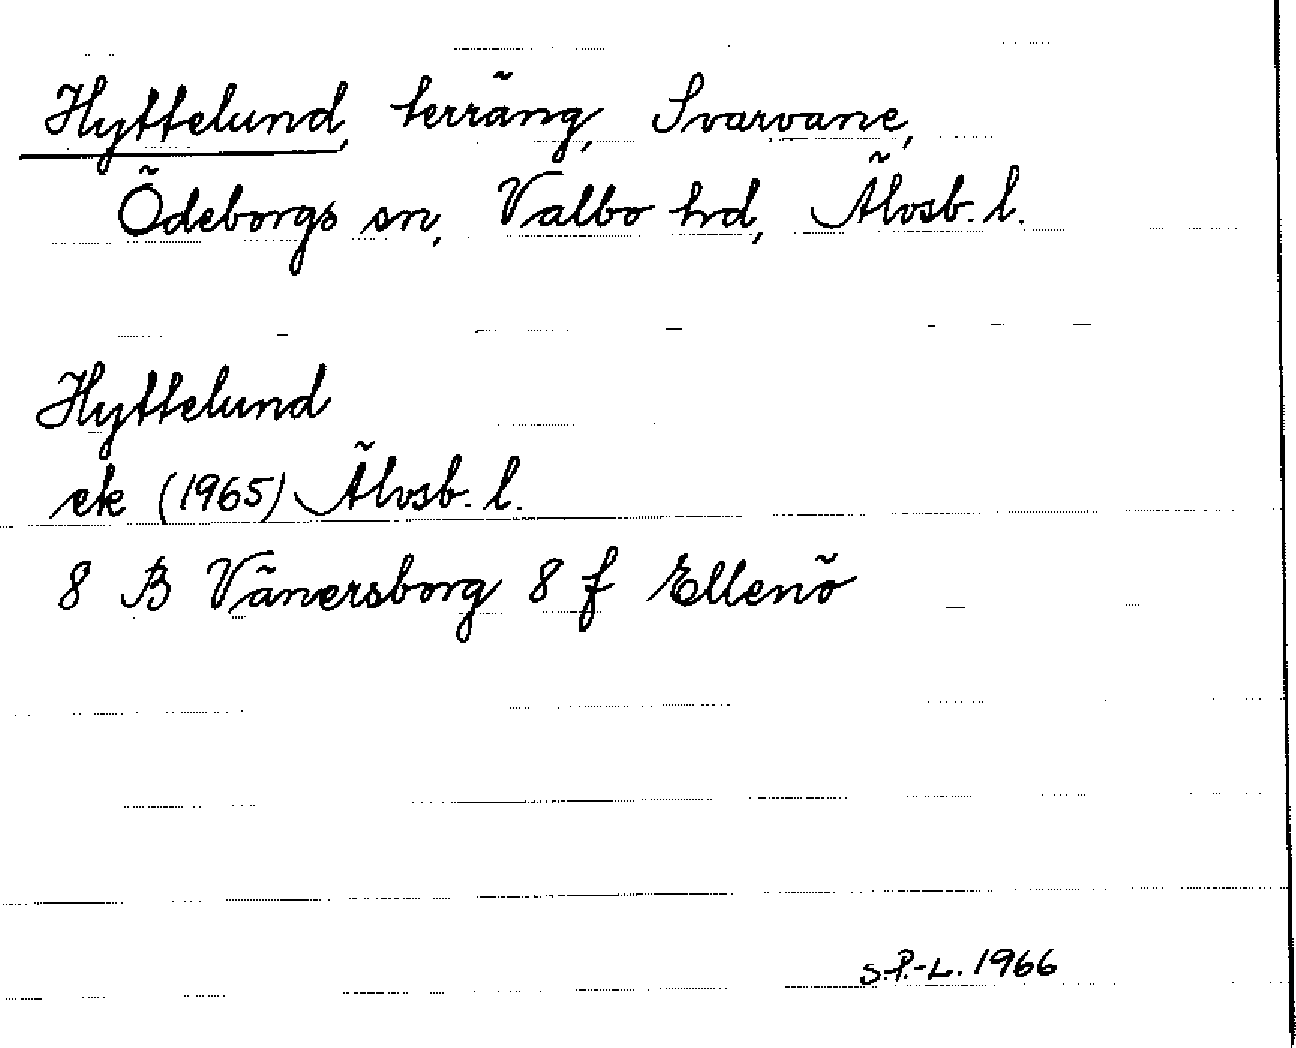 Hyttelund, terräng, Svarvane,
Ödeborgs sn, Valbo hrd, Älvsb. l.
Hyttelund
ek (1965) Älvsb. l.
8 B Vänersborg 8 f Ellenö
S.P.-L. 1966